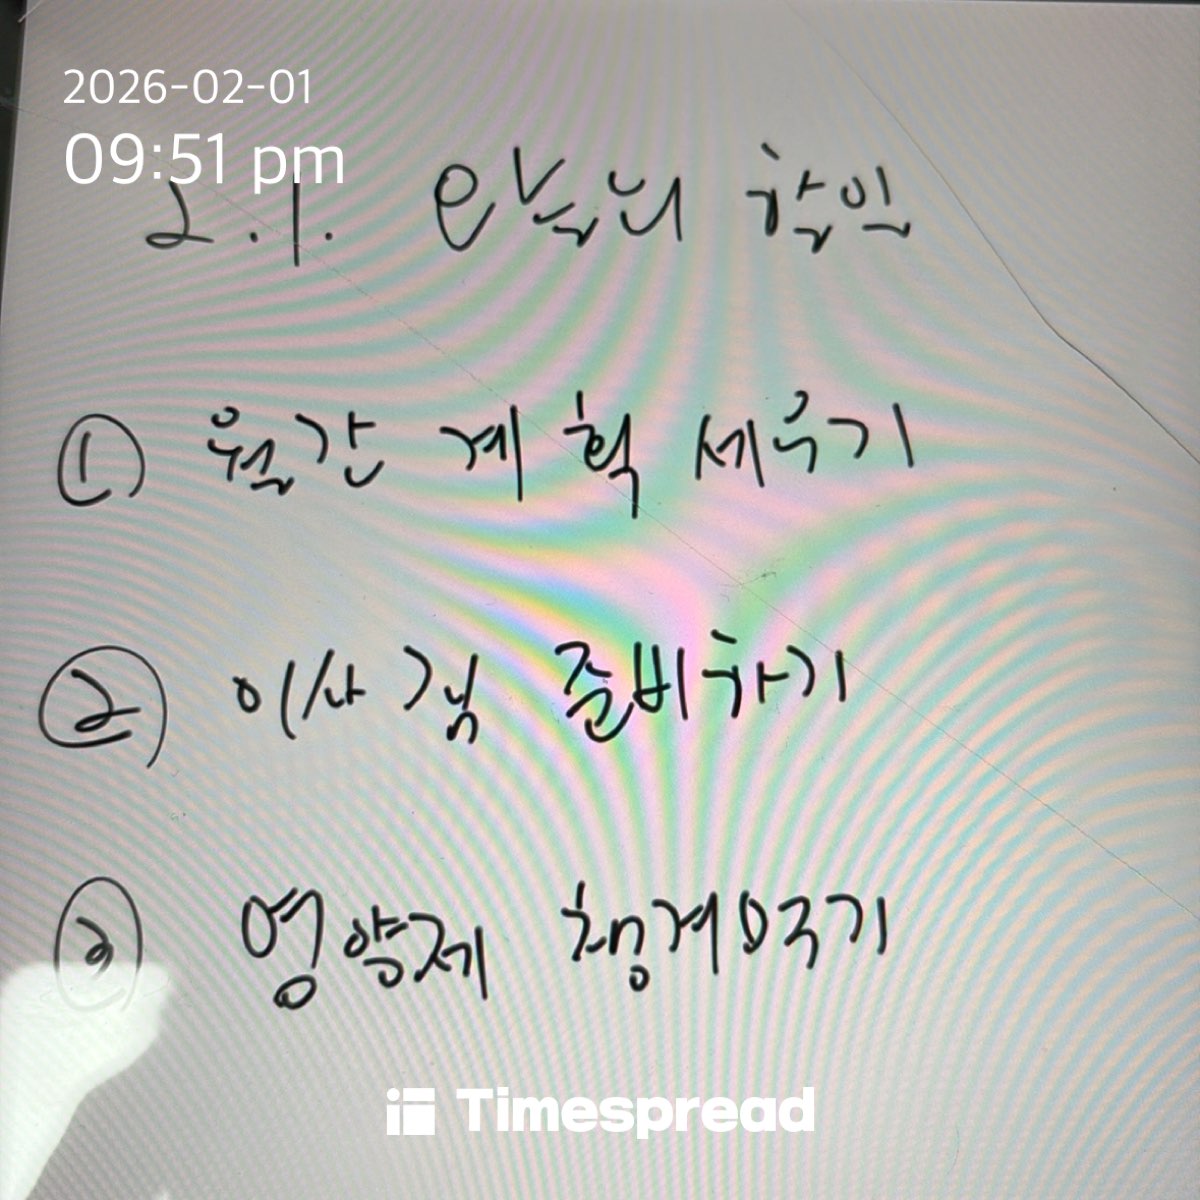 2026-02-01
09:51 pm
2.1. 오늘의 할일
① 월간 계획 세우기
② 이사 짐 준비하기
③ 영양제 챙겨먹기
Timespread